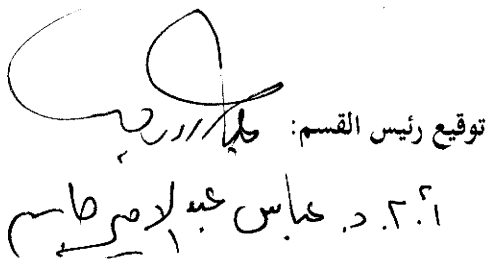 توقيع رئيس القسم:
أ.م.د. عباس عبد الامير جاسم